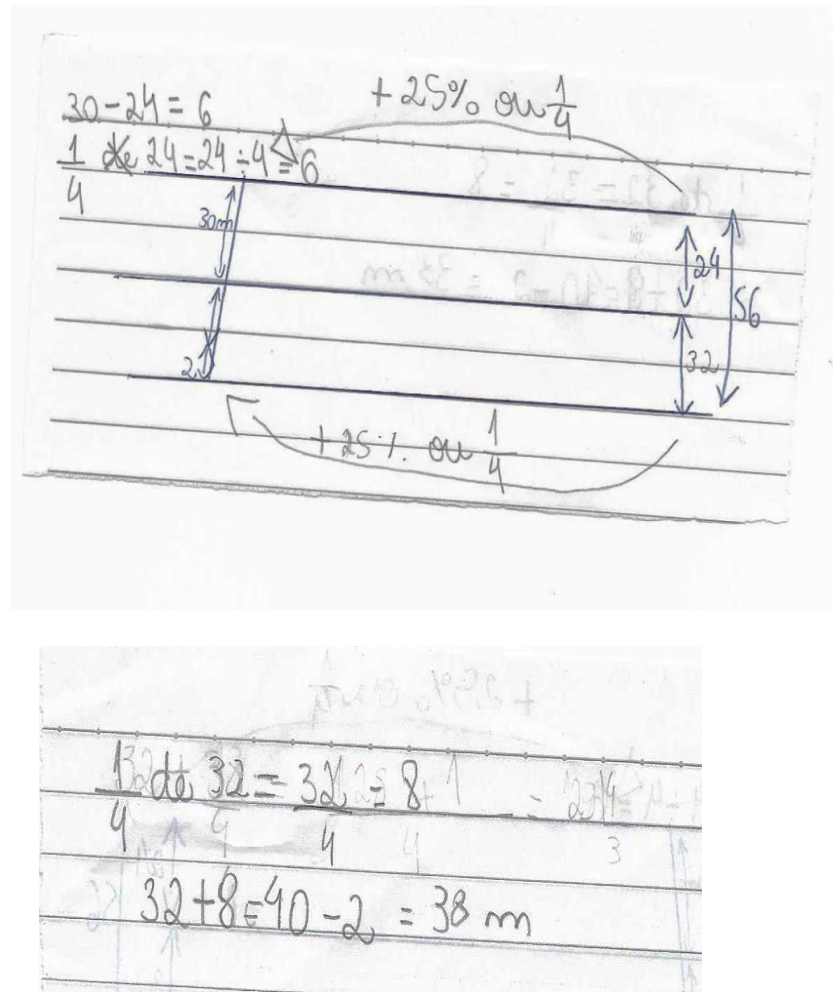 30-24 = 6
+25% ou 1/4
1/4 de 24=24÷4=6
30m
24
56
32
2
+25% ou 1/4
1/4 de 32 = 32/4 = 8
32+8=40-2 = 38 m